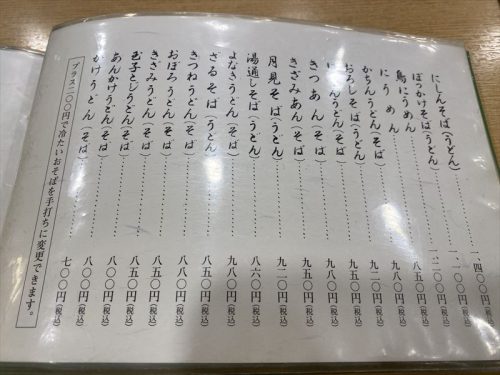 にしんそば(うどん)……一、四〇〇円(税込)
ぼっかけそば(うどん)……一、一〇〇円(税込)
鳥にうめん……一、二〇〇円(税込)
にうめん……八五〇円(税込)
かちんうどん(そば)……九八〇円(税込)
おろしそば(うどん)……九二〇円(税込)
うどん(そば)……九五〇円(税込)
きつあん(そば)……九五〇円(税込)
きざみあん(そば)……九五〇円(税込)
月見そば(うどん)……九二〇円(税込)
湯通しそば(うどん)……八六〇円(税込)
よなきうどん(そば)……九八〇円(税込)
ざるそば(うどん)……八五〇円(税込)
きつねうどん(そば)……八八〇円(税込)
おぼろうどん(そば)……八五〇円(税込)
きざみうどん(そば)……八五〇円(税込)
玉子とじうどん(そば)……八〇〇円(税込)
あんかけうどん(そば)……八〇〇円(税込)
かけうどん(そば)……七〇〇円(税込)
プラス二〇〇円で冷たいおそばを手打ちに変更できます。